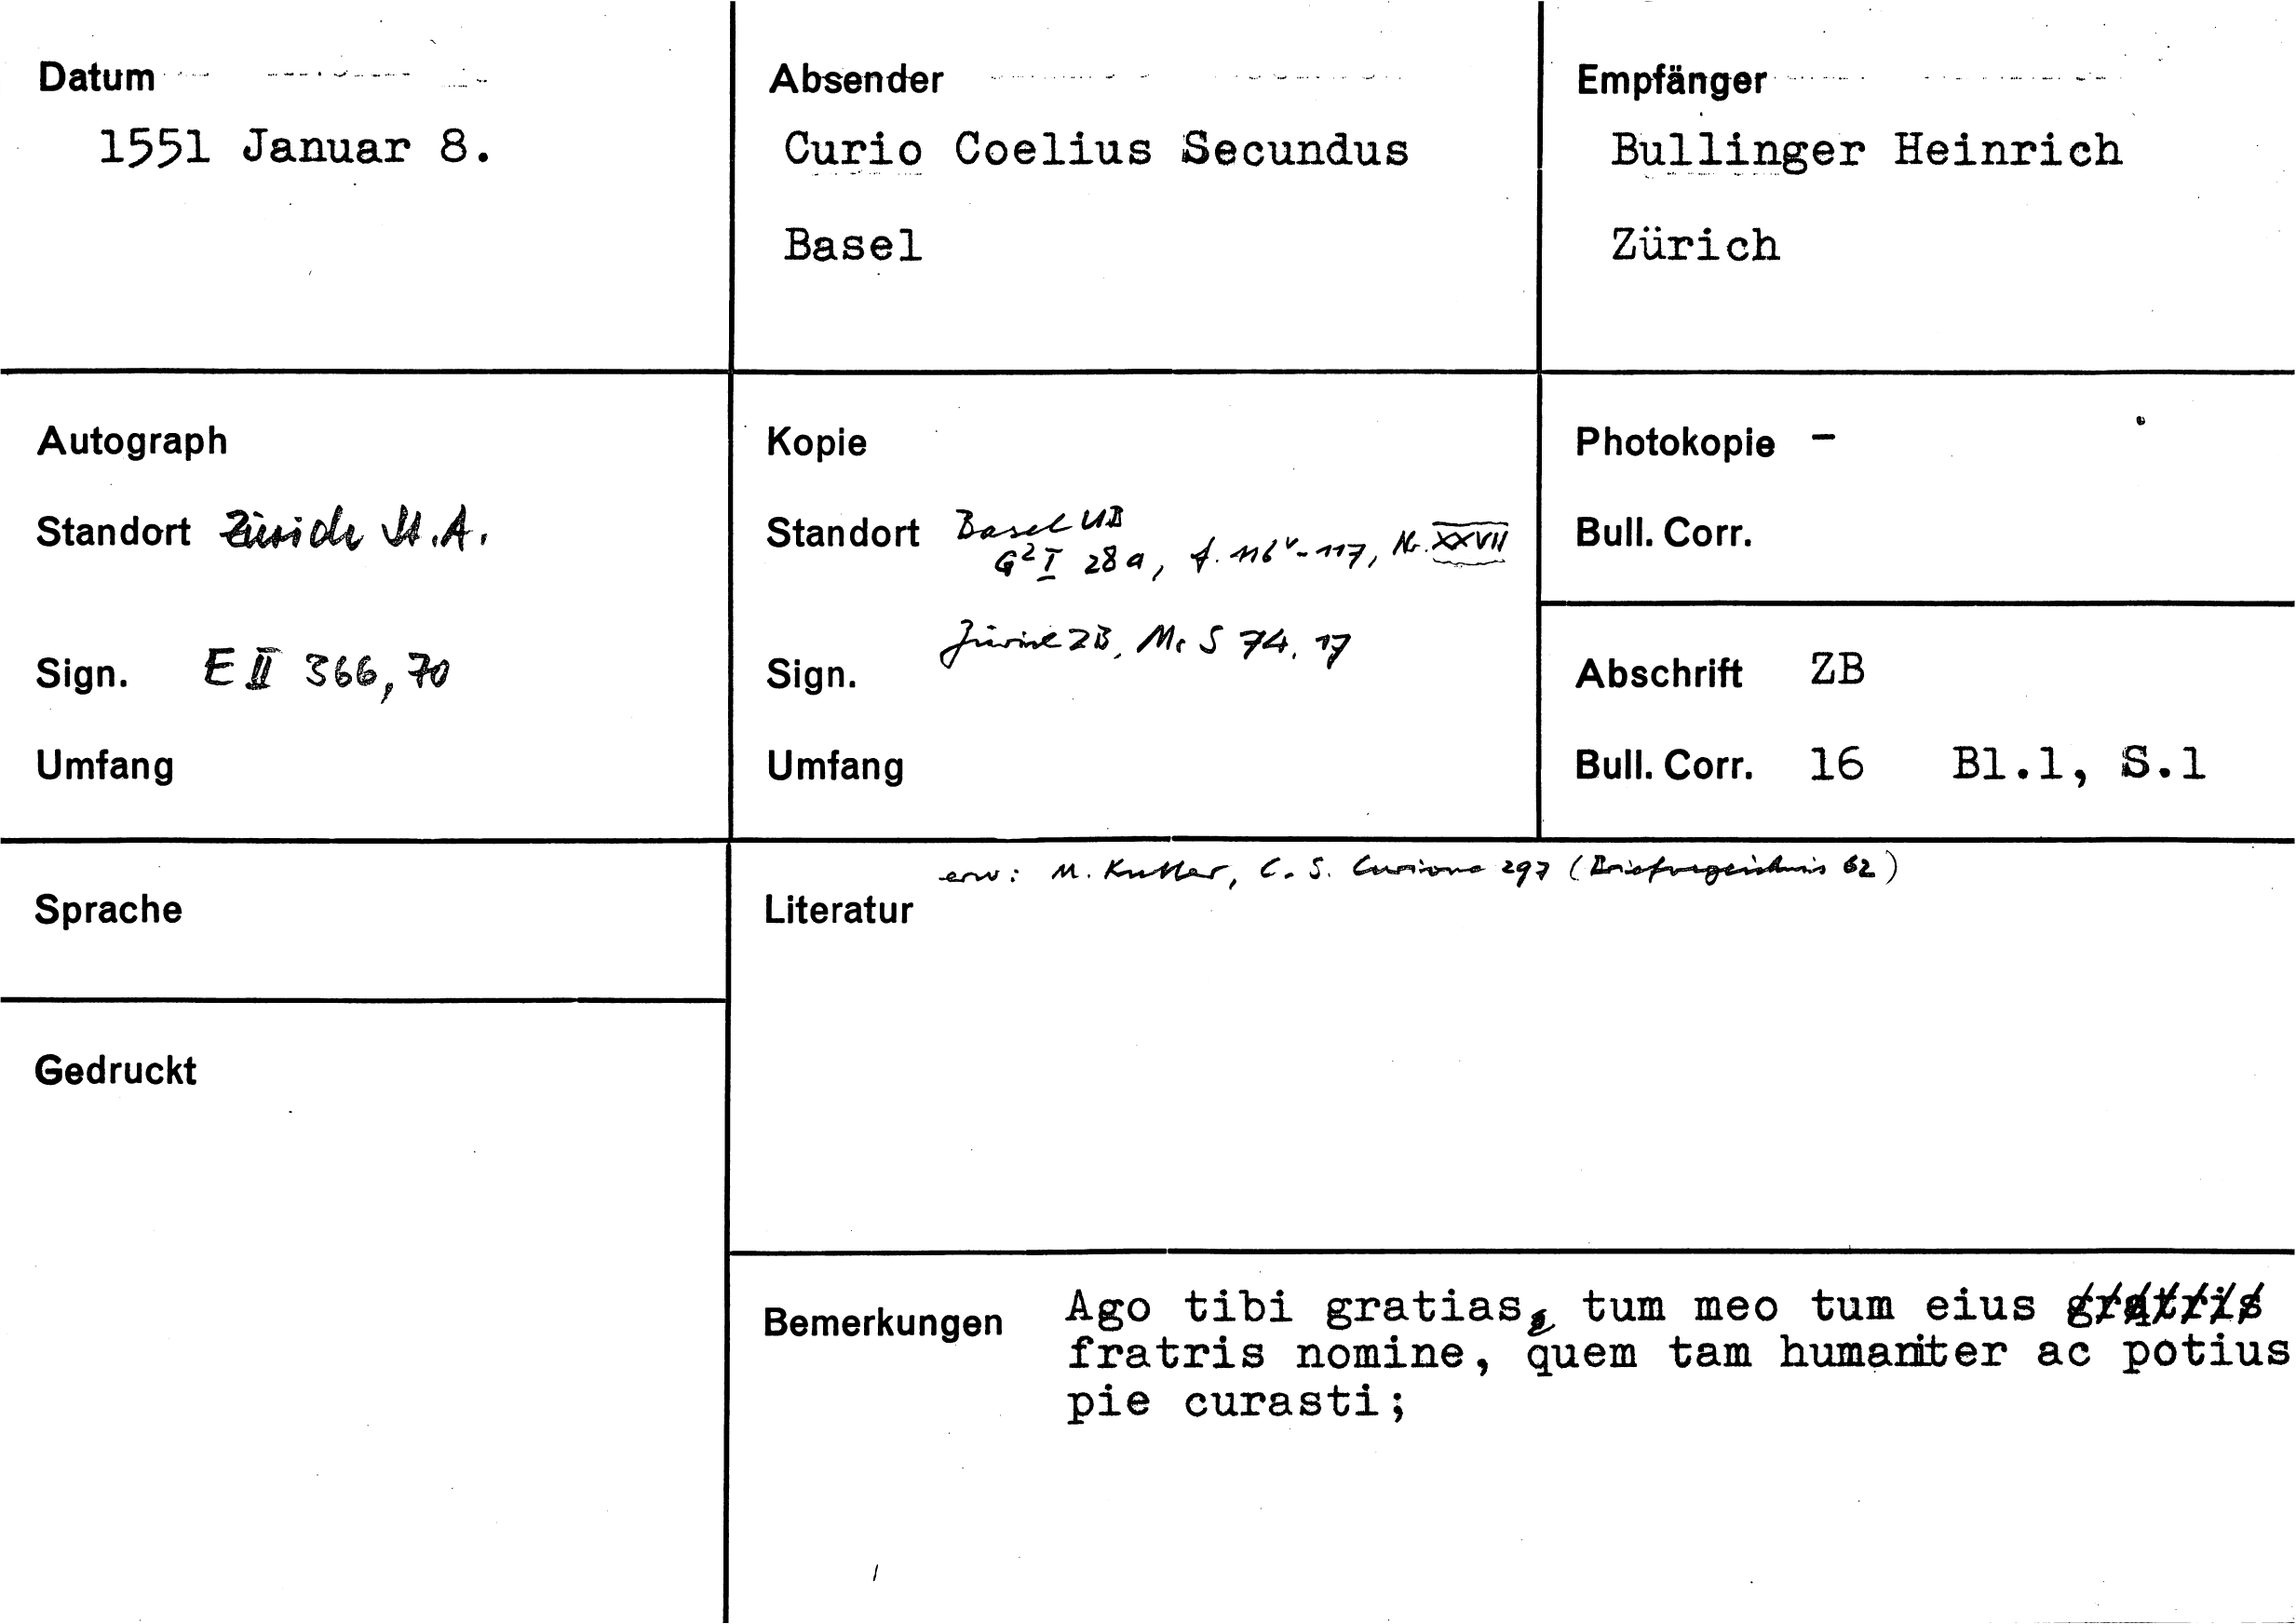 Datum
1551 Januar 8.
Absender
Curio Coelius Secundus
Basel
Empfänger
Bullinger Heinrich
Zürich
Autograph
Standort Zürich St.A.
Sign. E II 366,70
Umfang
Kopie
Standort Basel UB
G² I 28a, f. 116v-117, Nr. XXVII
Zürich ZB, Ms S 74, 17
Sign.
Umfang
Photokopie -
Bull. Corr.
Abschrift ZB
Bull. Corr. 16 Bl.1, S.1
Sprache
Gedruckt
erw: M. Kutter, C. S. Curione 297 (Briefverzeichnis 62)
Literatur
Bemerkungen Ago tibi gratias, tum meo tum eius gratris
fratris nomine, quem tam humaniter ac potius
pie curasti;